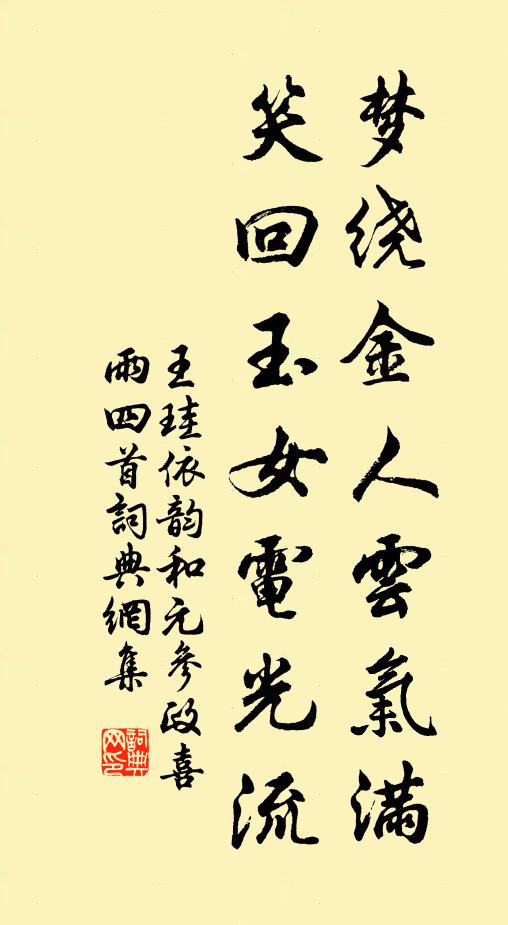 梦绕金人雲氣滿
笑回玉女電光流
王珪依韵和元參政喜
雨四首詞典網集
詞典网印